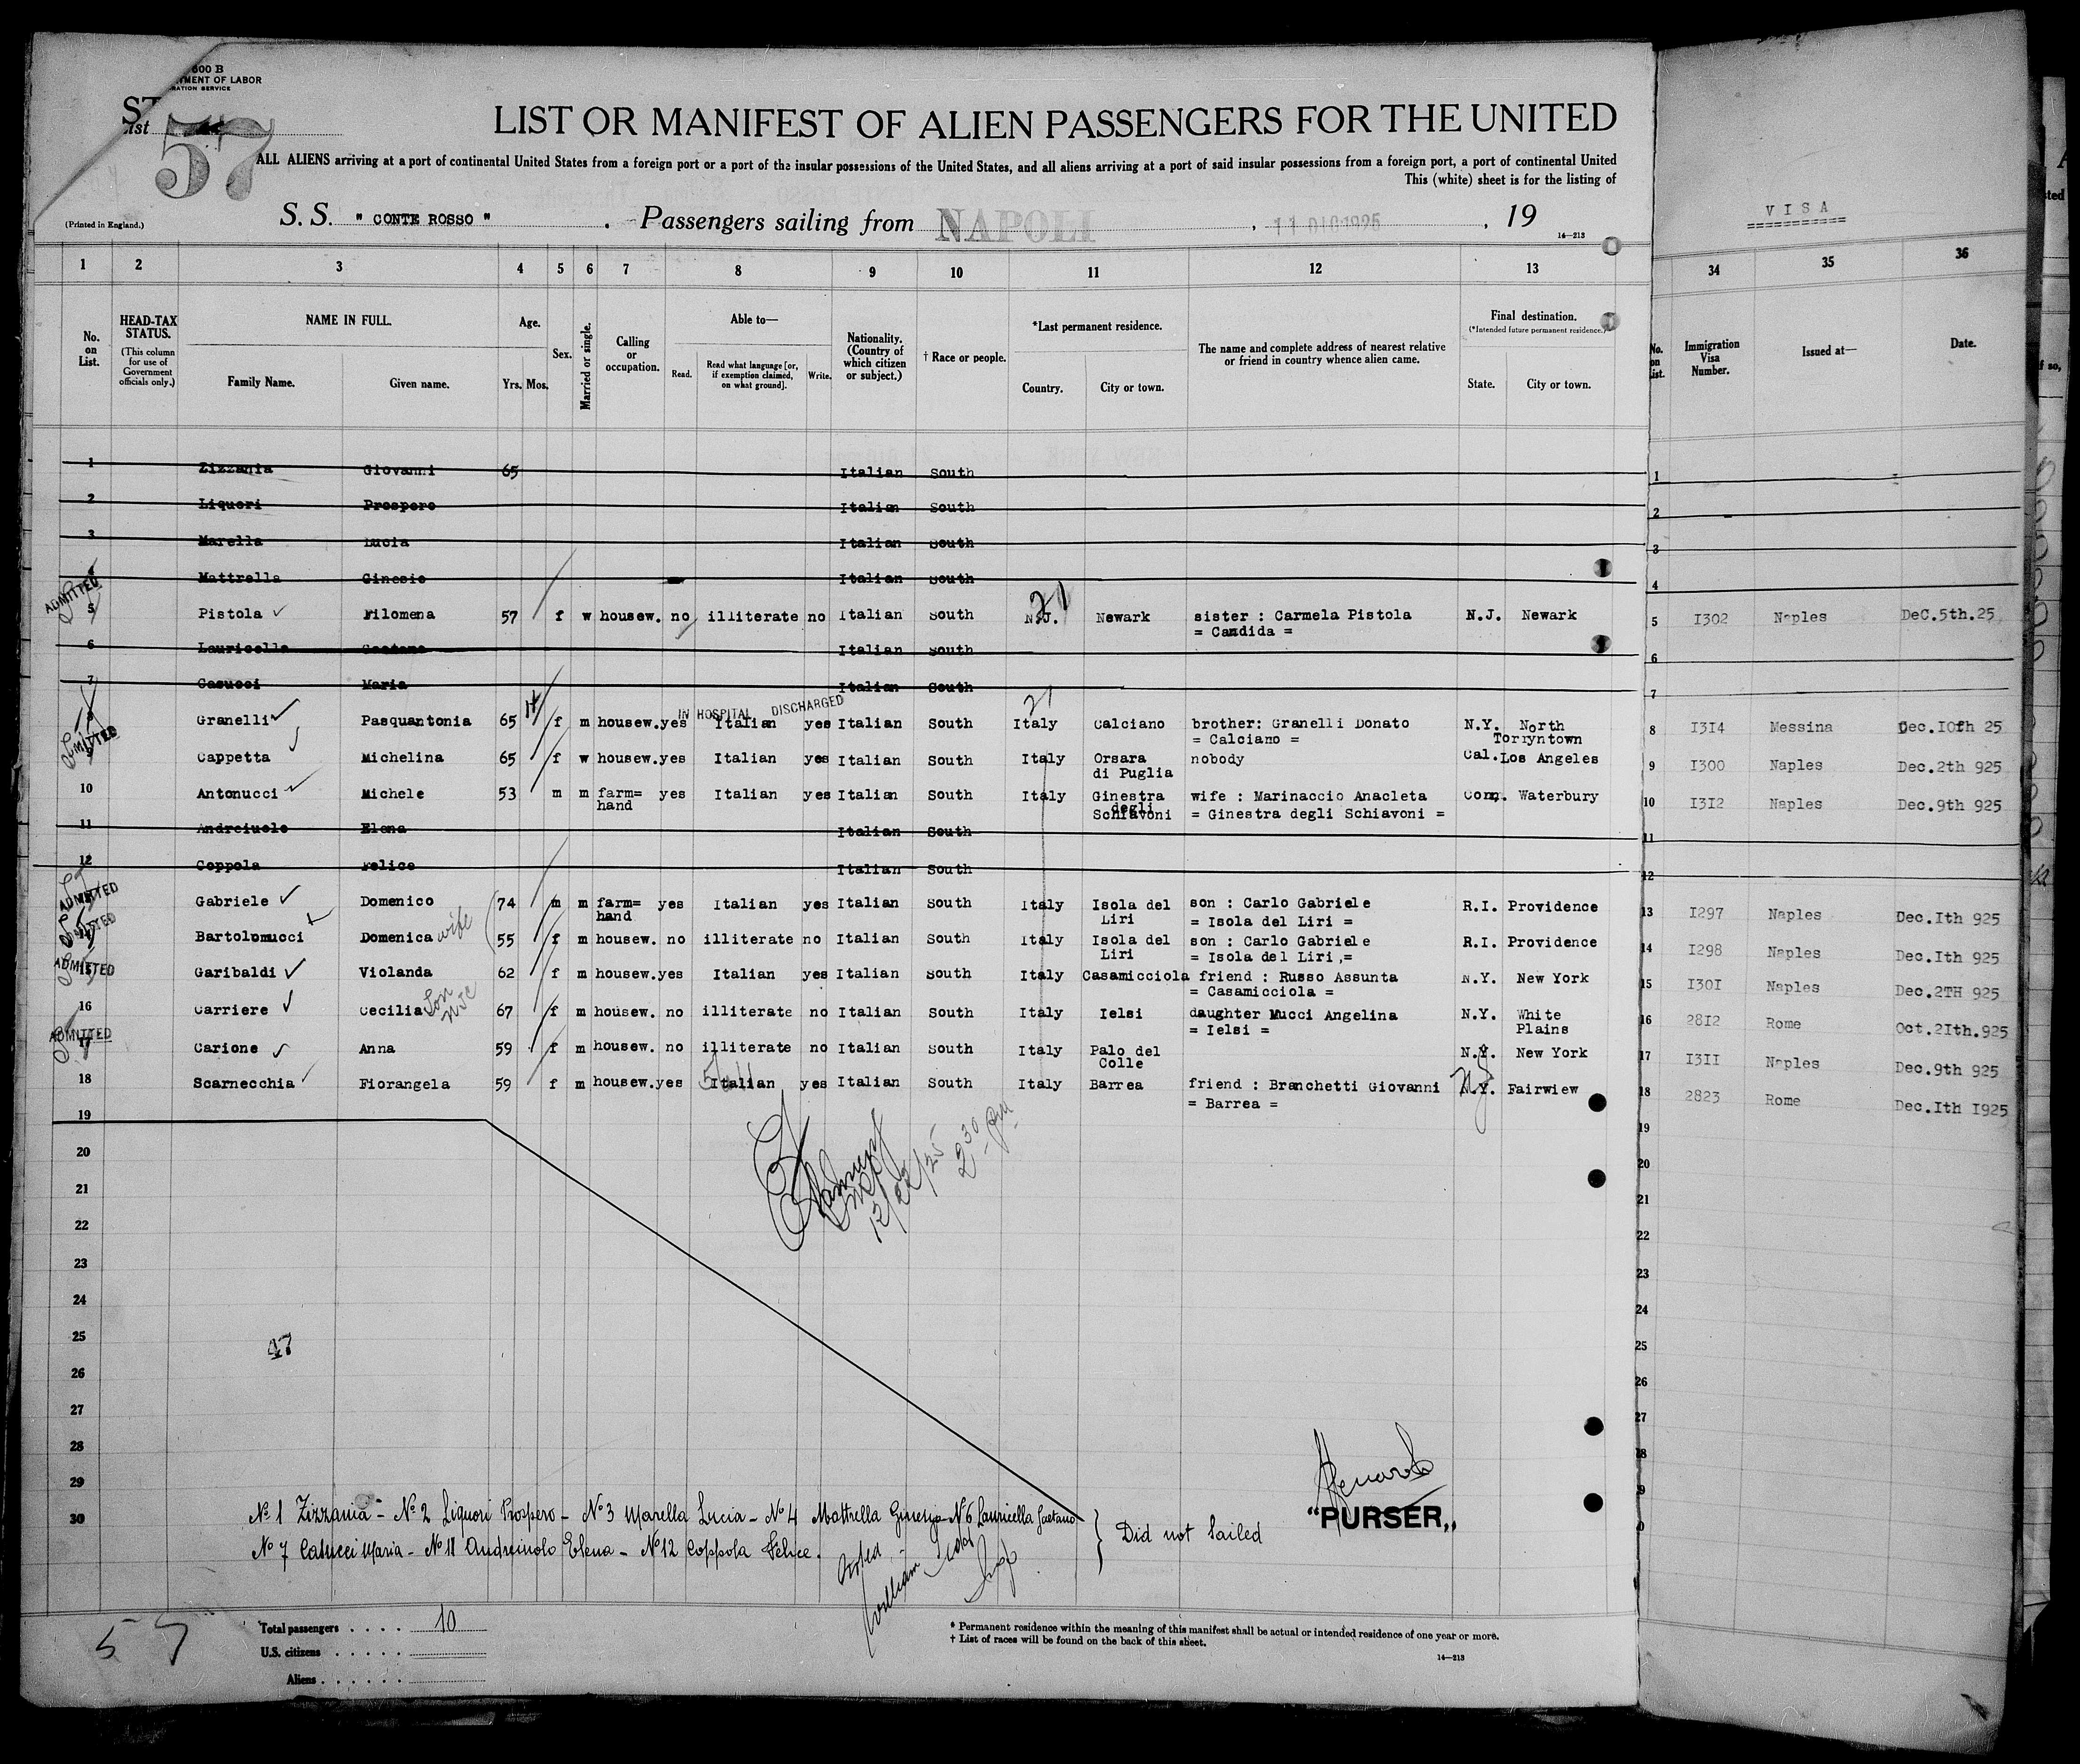 600 B
MENT OF LABOR
RATION SERVICE
ST
List
57
LIST OR MANIFEST OF ALIEN PASSENGERS FOR THE UNITED
ALL ALIENS arriving at a port of continental United States from a foreign port or a port of the insular possessions of the United States, and all aliens arriving at a port of said insular possessions from a foreign port, a port of continental United
This (white) sheet is for the listing of
(Printed in England.)
S. S. " CONTE ROSSO " . Passengers sailing from NAPOLI , 11 DIC 1925 , 19
14—213
VISA
1 2 3 4 5 6 7 8 9 10 11 12 13 34 35 36
No. on List.
HEAD-TAX STATUS.
(This column for use of Government officials only.)
NAME IN FULL.
Family Name. Given name.
Age.
Yrs. Mos.
Sex.
Married or single.
Calling or occupation.
Able to—
Read. Read what language [or, if exemption claimed, on what ground]. Write.
Nationality. (Country of which citizen or subject.)
† Race or people.
*Last permanent residence.
Country. City or town.
The name and complete address of nearest relative or friend in country whence alien came.
Final destination.
(*Intended future permanent residence.)
State. City or town.
No. on List.
Immigration Visa Number.
Issued at—
Date.
1 Zizzania Giovanni 65 Italian South 1
2 Liquori Prospero Italian South 2
3 Marella Lucia Italian South 3
4 Mattrella Ginesio Italian South 4
ADMITTED
21
5 Pistola Filomena 57 f w housew. no illiterate no Italian South N.J. Newark sister : Carmela Pistola N.J. Newark 5 I302 Naples DeC.5th.25
= Candida =
6 Lauricella Gaetano Italian South 6
7 Casucci Maria Italian South 7
IN HOSPITAL DISCHARGED
21
8 Granelli Pasquantonia 65 f m housew.yes Italian yes Italian South Italy Calciano brother: Granelli Donato N.Y. North 8 I3I4 Messina Dec.IOth 25
= Calciano = Torryntown
ADMITTED
9 Cappetta Michelina 65 f w housew.yes Italian yes Italian South Italy Orsara nobody Cal. Los Angeles 9 I300 Naples Dec.2th 925
di Puglia
10 Antonucci Michele 53 m m farm= yes Italian yes Italian South Italy Ginestra wife : Marinaccio Anacleta Conn. Waterbury 10 I3I2 Naples Dec.9th 925
hand degli
Schiavoni = Ginestra degli Schiavoni =
11 Andreiuolo Elena Italian South 11
12 Coppola Felice Italian South 12
ADMITTED
13 Gabriele Domenico 74 m m farm= yes Italian yes Italian South Italy Isola del son : Carlo Gabriele R.I. Providence 13 I297 Naples Dec.Ith 925
hand Liri = Isola del Liri =
ADMITTED
14 Bartolomucci Domenica wife 55 f m housew. no illiterate no Italian South Italy Isola del son : Carlo Gabriele R.I. Providence 14 I298 Naples Dec.Ith 925
Liri = Isola del Liri,=
ADMITTED
15 Garibaldi Violanda 62 f m housew.yes Italian yes Italian South Italy Casamicciola friend : Russo Assunta N.Y. New York 15 I30I Naples Dec.2TH 925
= Casamicciola =
16 Carriere Cecilia 67 f m housew. no illiterate no Italian South Italy Ielsi daughter Mucci Angelina N.Y. White 16 28I2 Rome Oct.2Ith.925
= Ielsi = Plains
ADMITTED
17 Carione Anna 59 f m housew. no illiterate no Italian South Italy Palo del N.Y. New York 17 I3II Naples Dec.9th 925
Colle
18 Scarnecchia Fiorangela 59 f m housew.yes Italian yes Italian South Italy Barrea friend : Branchetti Giovanni N.Y. Fairwiew 18 2823 Rome Dec.Ith I925
= Barrea =
19 19
20 20
21 21
12/22/25 2 30 pm
22 22
23 23
24 24
25 25
47
26 26
27 27
28 28
29 9
30 0
No 1 Zizzania - No 2 Liquori Prospero - No 3 Marella Lucia - No 4 Mattrella Ginesio - No 6 Lauricella Gaetano
No 7 Casucci Maria - No 11 Andreiuolo Elena - No 12 Coppola Felice.
Did not sailed
"PURSER„
57
Total passengers . . . . 10
U.S. citizens . . . . .
Aliens . . . . . .
* Permanent residence within the meaning of this manifest shall be actual or intended residence of one year or more.
† List of races will be found on the back of this sheet.
14—213